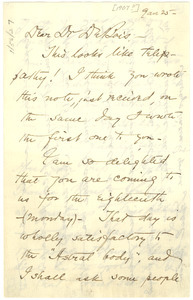 [1907]
Jan 25 -
Dear Dr. DuBois -
This looks like telepa-
pathy! I think you wrote
this note, just received, on
the same day I wrote
the first one to you.
I am so delighted
that you are coming to
us for the eighteenth
(Monday) - That day is
wholly satisfactory to
the "Astral body", and
I shall ask some people